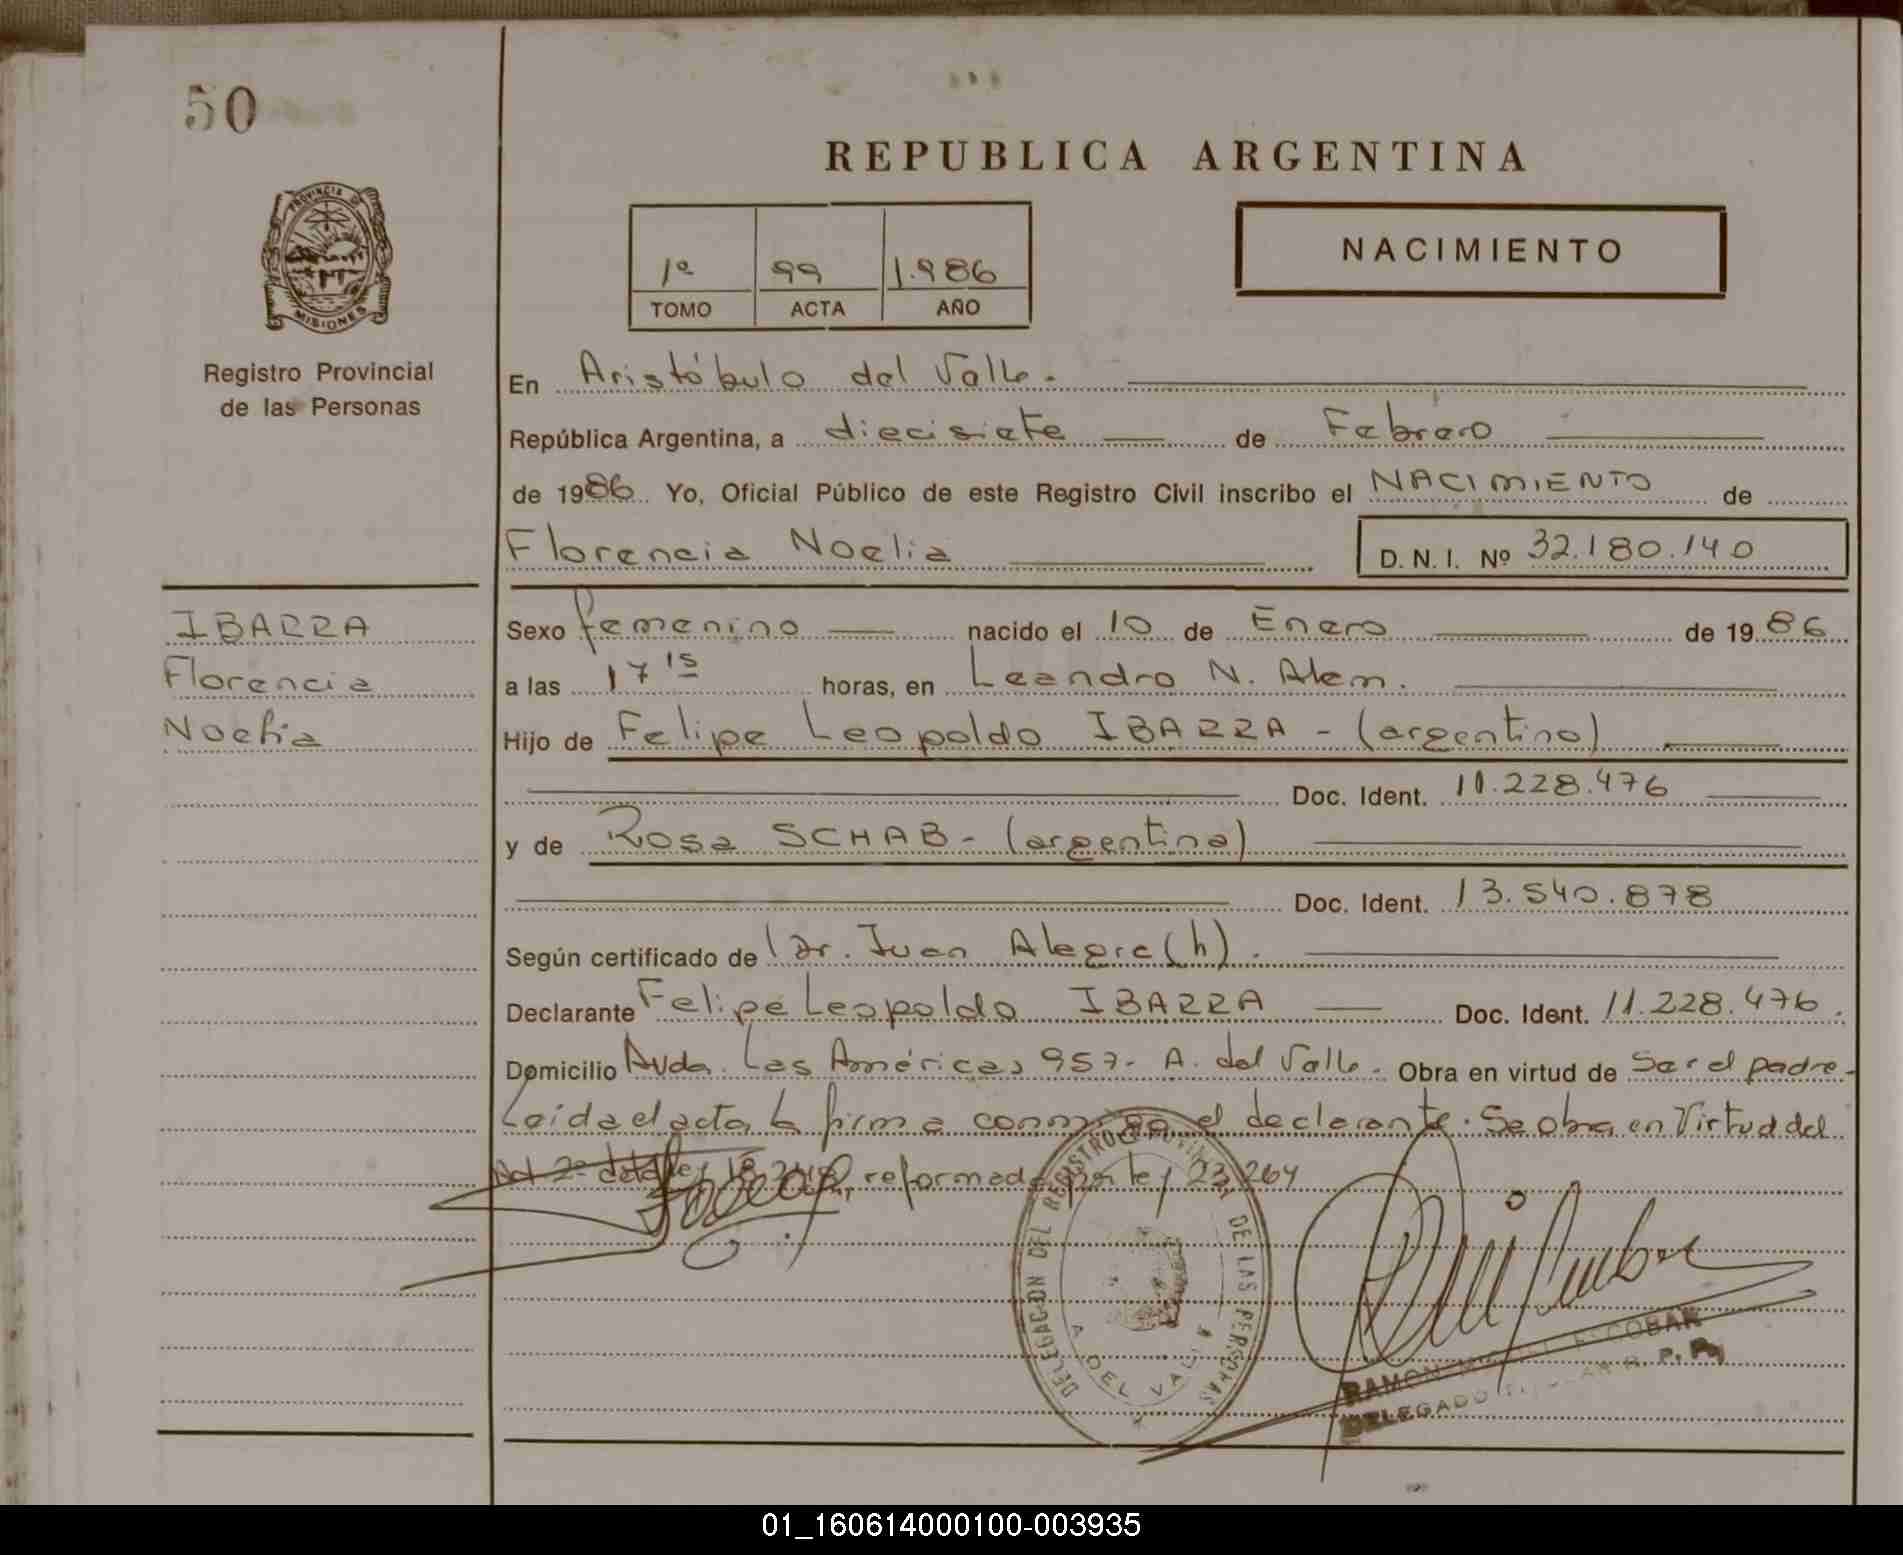 50
REPUBLICA ARGENTINA
PROVINCIA DE
MISIONES
Registro Provincial
de las Personas
1º 99 1.986
TOMO ACTA AÑO
NACIMIENTO
En Aristóbulo del Valle.
República Argentina, a diecisiete de Febrero
de 1986 Yo, Oficial Público de este Registro Civil inscribo el NACIMIENTO de
Florencia Noelia D. N. I. Nº 32.180.140
IBARRA
Florencia
Noelia
Sexo femenino nacido el 10 de Enero de 1986
a las 17 15 horas, en Leandro N. Alem.
Hijo de Felipe Leopoldo IBARRA - (argentino)
Doc. Ident. 11.228.476
y de Rosa SCHAB - (argentina)
Doc. Ident. 13.540.878
Según certificado de Dr. Juan Alegre (h).
Declarante Felipe Leopoldo IBARRA Doc. Ident. 11.228.476.
Domicilio Avda. Las Américas 957- A. del Valle. Obra en virtud de Ser el padre-
Leída el acta la firma conmigo el declarante. Se obra en Virtud del
reformado por ley 23.264
DELEGACION DEL REGISTRO DE LAS PERSONAS
A. DEL VALLE
RAMON ESCOBAR
DELEGADO TITULAR R. P. P.
01_160614000100-003935